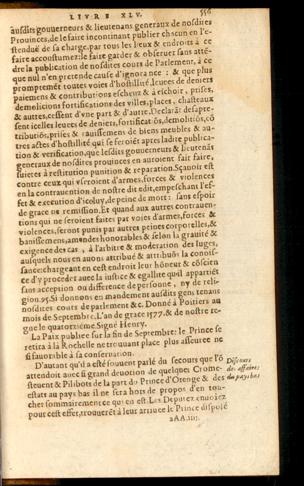 LIVRE XLV. 556
ausdits gouuerneurs & lieutenans generaux de nosdires
Prouinces, de le faire incontinant publier chacun en l'e-
stenduë de sa charge, par tous les lieux & endroits à ce
faire accoustumez: le faire garder & obseruer sans atté-
dre la publication de nosdites cours de Parlement, à ce
que nul n'en pretende cause d'ignorance : & que plus
promptemēt toutes voies d'hostilité, leuees de deniers
paiemens & contributions escheuz & à eschoir, prises,
demolicions fortifications des villes, places, chasteaux
& autres, cessent d'vne part & d'autre. Declarās desapre-
sent icelles leuees de deniers, fortificatiōs, demolitiōs, cō
tributiōs, prises & rauissemens de biens meubles & au-
tres actes d'hostilité qui se feroiēt apres ladite publica-
tion & verification, que lesdits gouuerneurs & lieutenās
generaux de nosdites prouinces en auroient fait faire,
suietes à restitution punition & reparation. Sçauoir est
contre ceux qui vseroient d'armes, forces & violences
en la contrauention de nostre dit edit, empeschant l'ef-
fet & execution d'iceluy, de peine de mort : sans espoir
de grace ni remission. Et quand aux autres contrauen-
tions qui ne seroient faites par voies d'armes, forces &
violences, seront punis par autres peines corporelles, &
banissemens, amendes honorables & selon la grauité &
exigence des cas, à l'arbitre & moderation des Iuges,
ausquels nous en auons attribué & attribuōs la conois-
sance: chargeant en cest endroit leur honeur & cōscien
ce d'y proceder auec la iustice & egallité qu'il appartiēt
sans acception ou difference de personne, ny de reli-
gion. 95. Si donnons en mandement ausdits gens tenans
nosdites cours de parlement &c. Donné à Poitiers au
mois de Septembre. L'an de grace 1577. & de nostre re-
gne le quatorziéme. Signé Henry.
La Paix publiee sur la fin de Septembre: le Prince se
retira à la Rochelle ne trouuant place plus asseuree ne
si fauorable à sa conseruation.
D'autant qu'il a esté souuent parlé du secours que l'ō
attendoit auec si grand deuotion de quelques Crome-
steuent & Pilibots de la part du Prince d'Orenge & des
estats au pays bas il ne sera hors de propos d'en tou-
cher sommairement ce qui en est. Les Deputez enuoiez
pour cest effet, trouuerēt à leur arriuee le Prince disposé
Discours
des affaires
du pays bas
aAA.iiij.